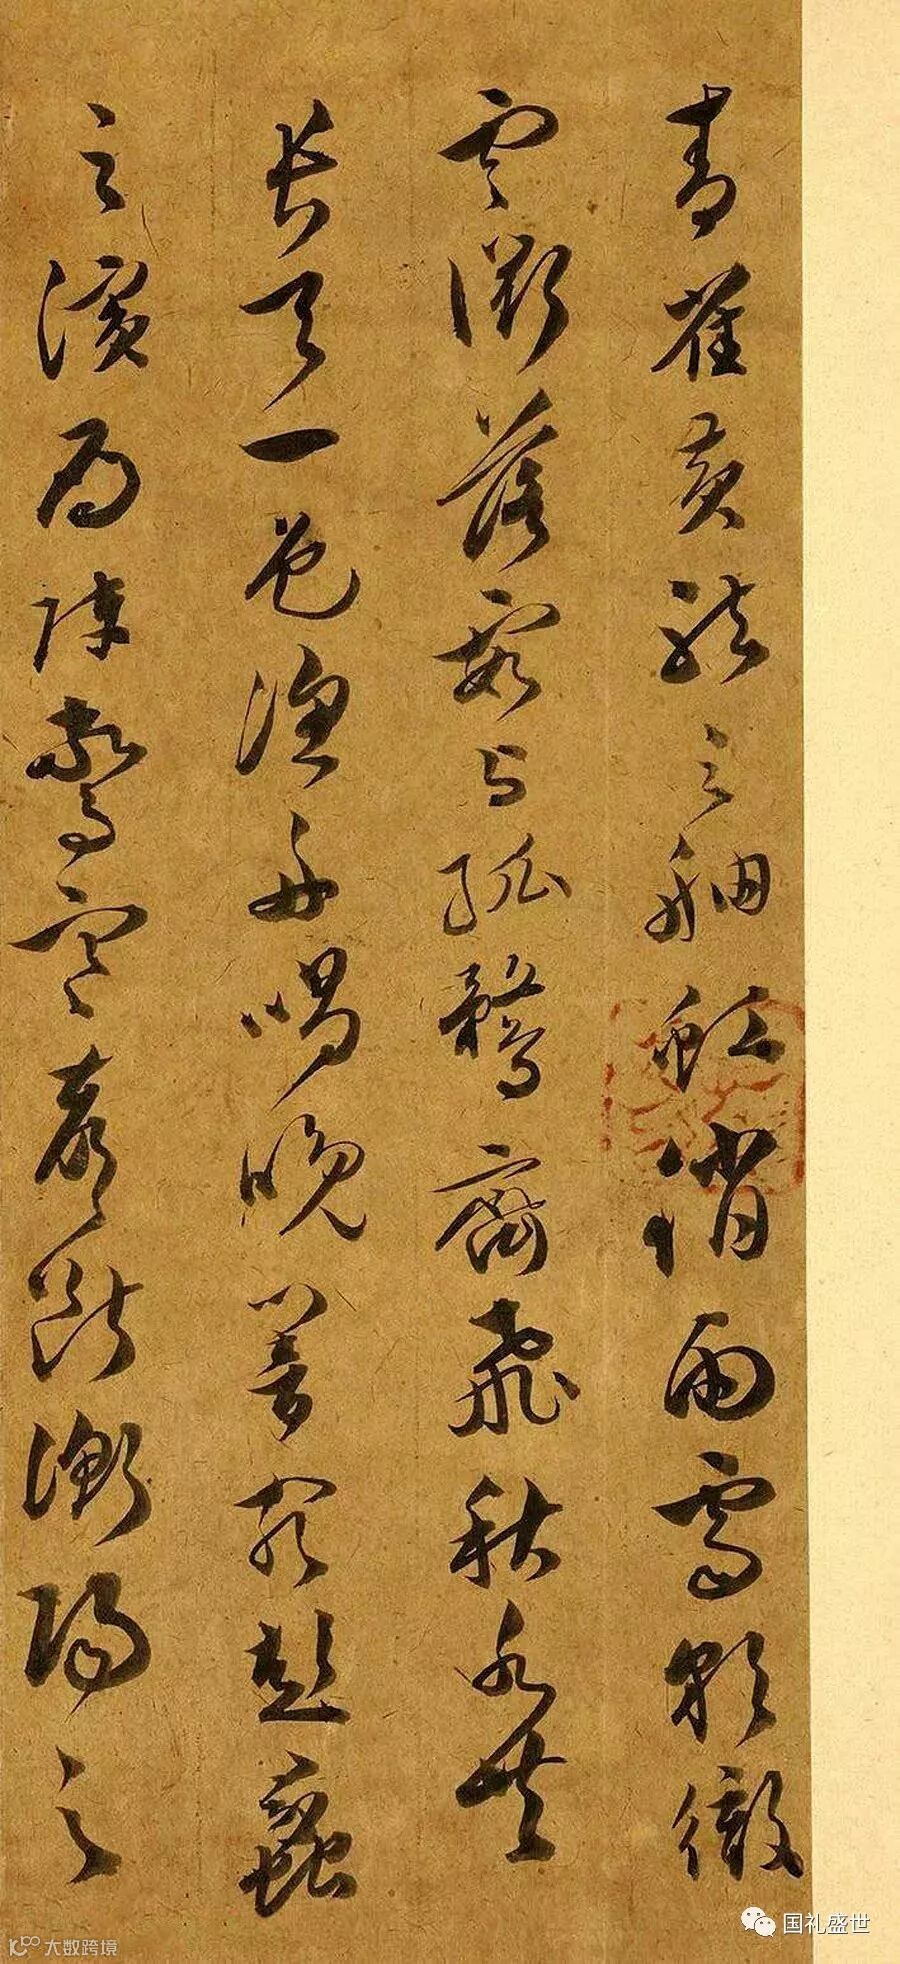 青雀黄龍之舳虹銷雨霽彩徹
雲衢落霞与孤鶩齊飛秋水共
長天一色漁舟唱晚響窮彭蠡
之濱雁陣驚寒聲斷衡陽之
国礼盛世
大数跨境